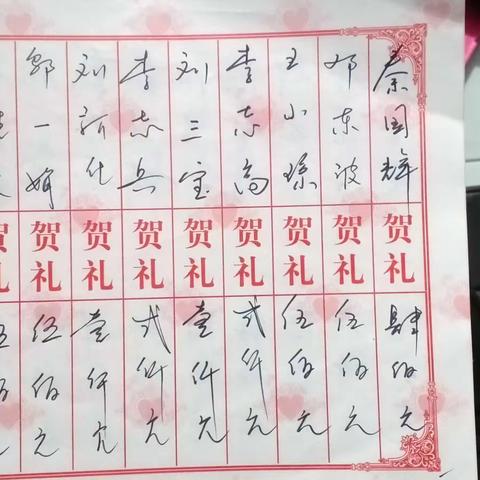 秦国辉 贺礼 肆佰元
邓东波 贺礼 伍佰元
王小 贺礼 伍佰元
李志高 贺礼 弍仟元
刘三宝 贺礼 壹仟元
李志兵 贺礼 弍仟元
刘新化 贺礼 壹仟元
邹一娟 贺礼 伍佰元
贺礼